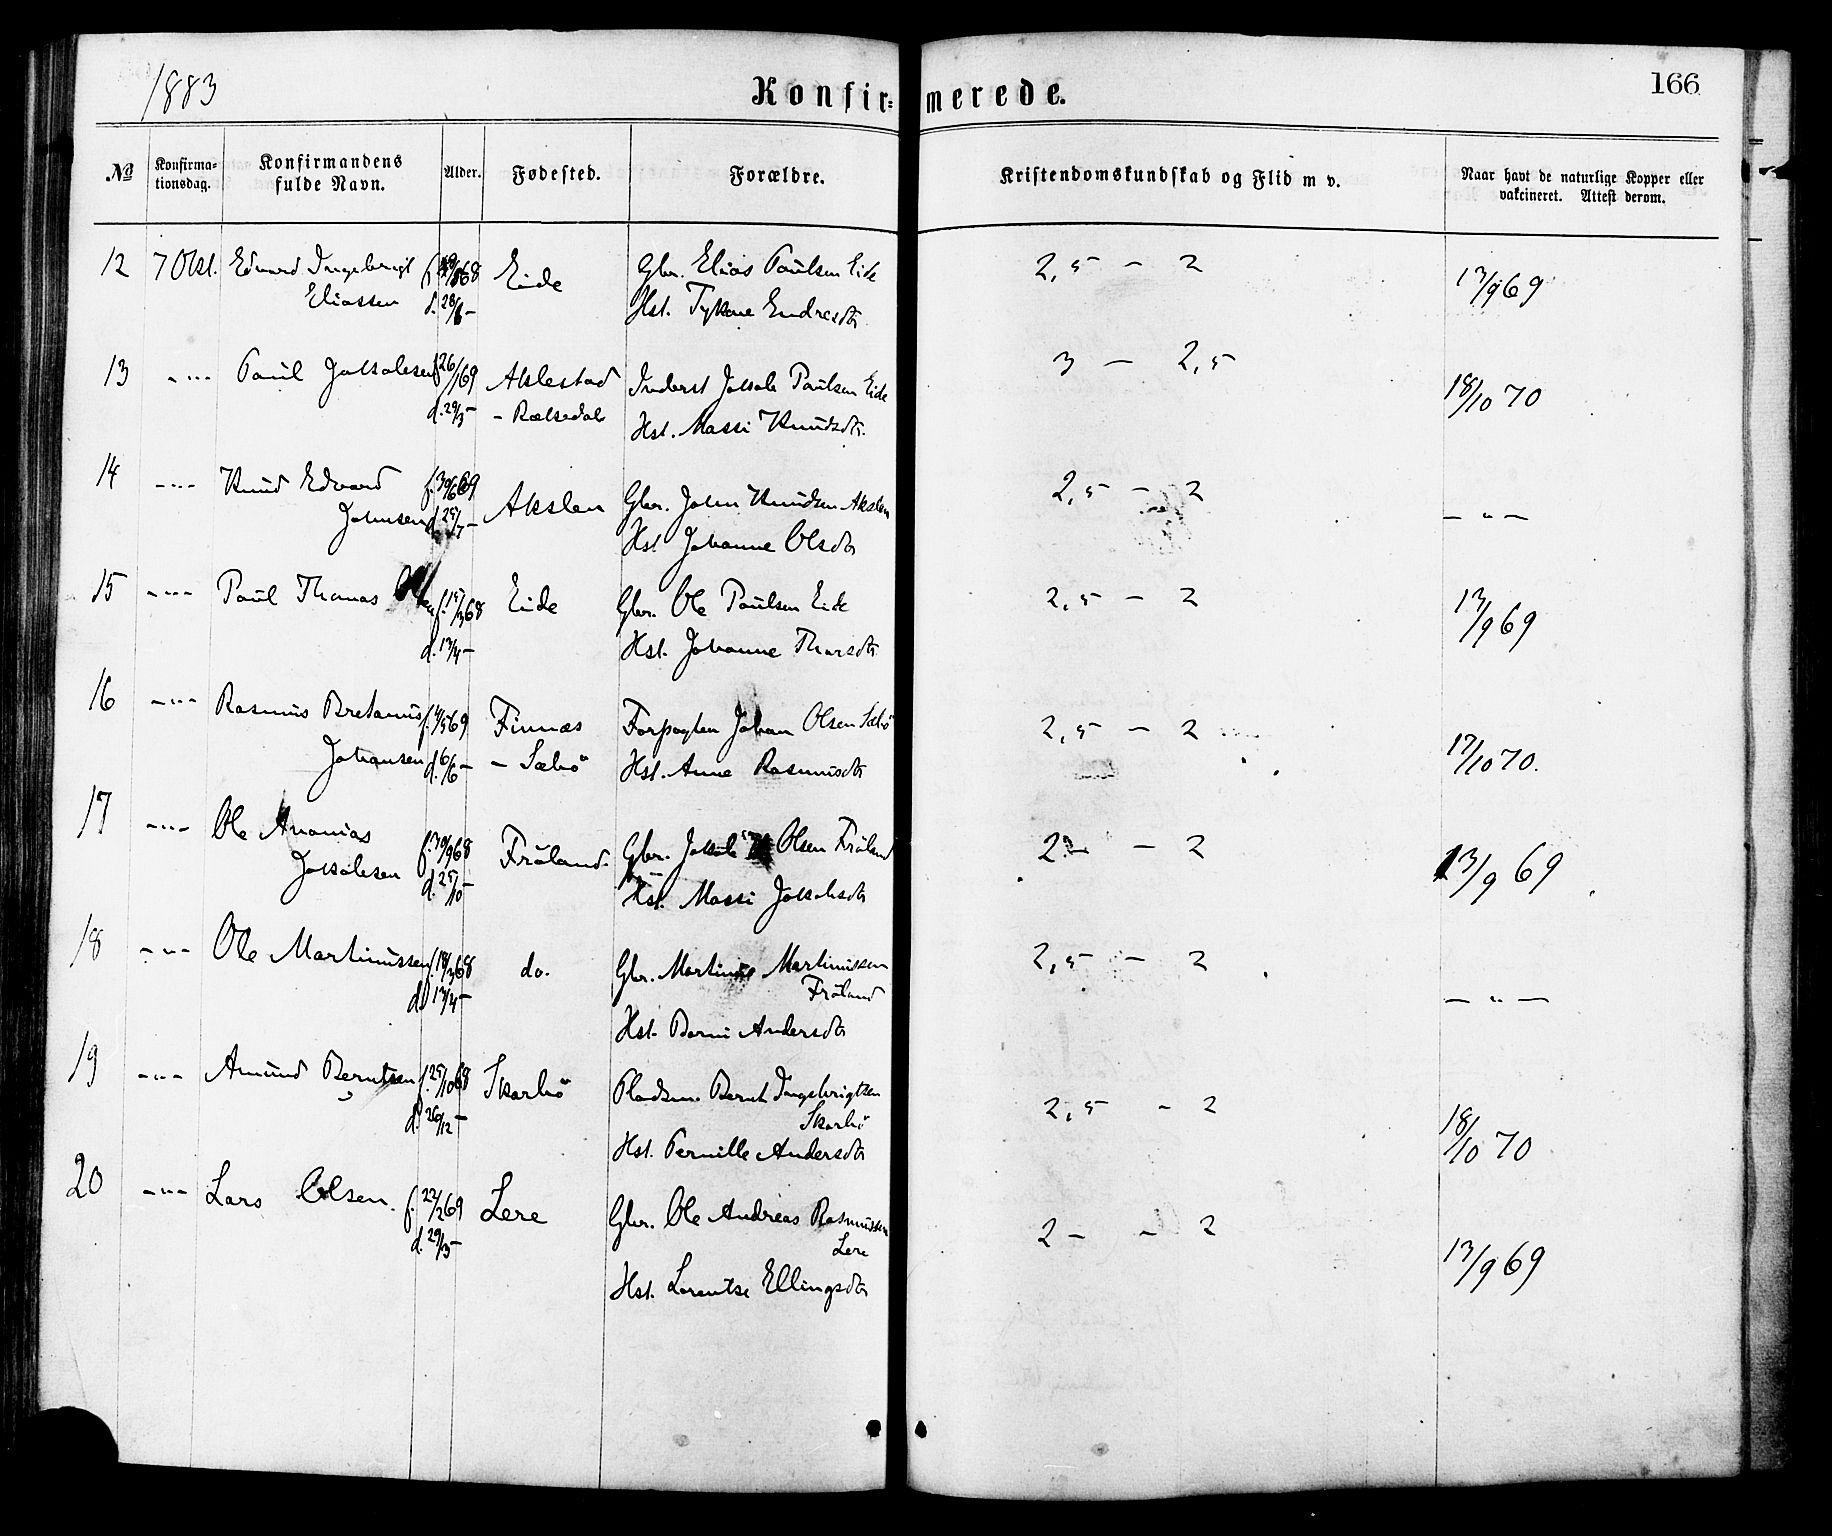 1883
Konfirmerede.
166
No
Konfirma-
tionsdag.
Konfirmandens
fulde Navn.
Alder.
Fødested.
Forældre.
Kristendomskundskab og Flid m v.
Naar havt de naturlige Kopper eller
vakcineret. Attest derom.
12 7 Okt. Edvard Ingebrigt Eide Gbr. Elias Paulsen Eide 2,5 - 2 13/9 69
Eliassen d. 28/6 - Hst. Endresdtr
13 - " - Paul Jakobsen f. 26/1 69 Akslestad Inderst Jakob Paulsen Eide 3 - 2,5 18/10 70
d. 29/3 - - Rælsedal Hst. Massi Knudsdtr.
14 - " - Knud Edvard f. 30/6 69 Akslen Gbr. John Knudsen Akslen 2,5 - 2 - " -
Johnsen d. 25/7 - Hst. Johanne Olsdtr
15 - " - Paul Thomas Olsen f. 15/3 68 Eide Gbr. Ole Paulsen Eide 2,5 - 2 13/9 69
d. 13/4 - Hst. Johanne Thorsdtr
16 - " - Rasmus Bretanus f. 4/5 69 Finnæs Forpagter Johan Olsen Sæbö 2,5 - 2 17/10 70.
Johansen d. 6/6 - - Sæbö Hst. Anne Rasmusdtr
17 - " - Ole Ananias f. 30/9 68 Fröland. Gbr. Jakob Olsen Fröland 2 - - 2 13/9 69
Jakobsen d. 25/10 - Hst. Massi Jakobsdtr
18 - " - Ole Martinussen f. 18/3 68 do. Gbr. Martinus Martinussen 2,5 - 2 - " -
Fröland
d. 13/4 - Hst. Berni Andersdtr
19 - " - Amund Berntsen f. 25/10 68 Skarbö Pladsm. Bernt Ingebrigtsen 2,5 - 2 18/10 70
Skarbö
d. 26/12 - Hst. Pernille Andersdtr
20 - " - Lars Olsen. f. 22/2 69 Lere Gbr. Ole Andreas Rasmussen 2 - - 2 13/9 69
Lere
d. 29/3 - Hst. Lorentse Ellingsdtr